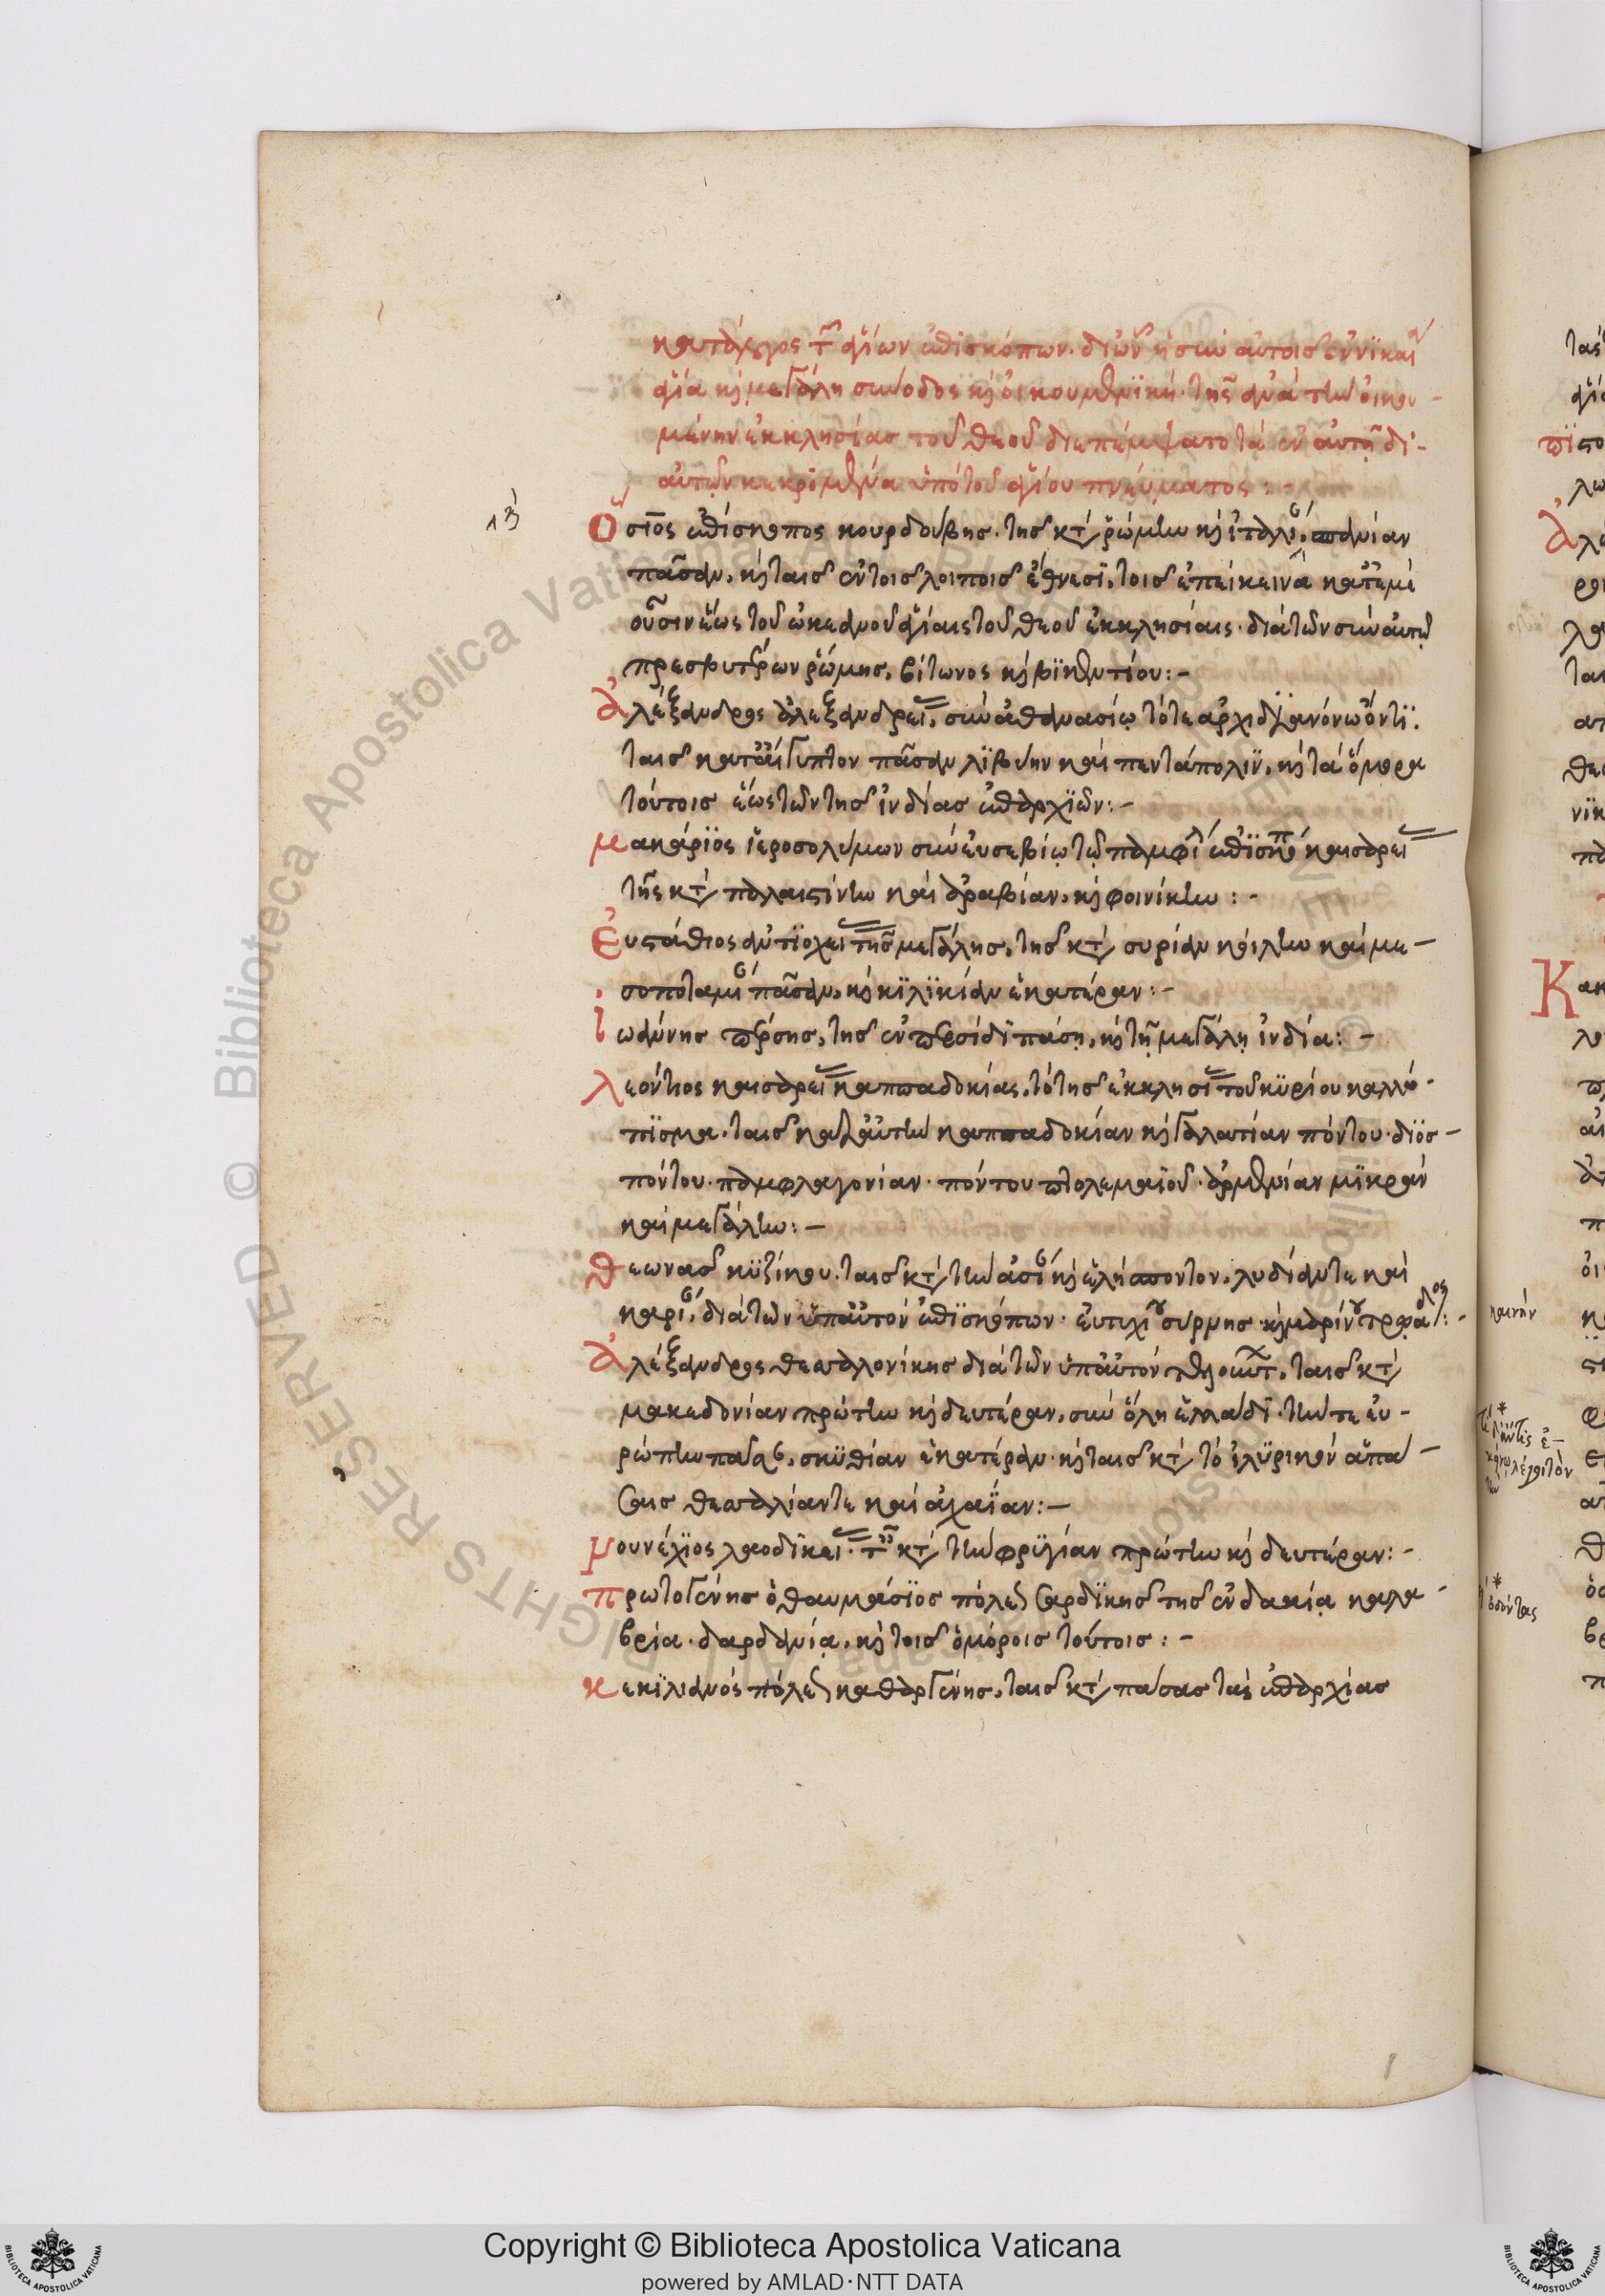 κατάλογος τῶν ἁγίων ἐπισκόπων. δι ὧν ἡ σὺν αὐτοῖς ἐν νικαίᾳ
ἁγία καὶ μεγάλη σύνοδος καὶ οἰκουμενικὴ. τῆς ἀνὰ τὴν οἰκου-
μένην ἐκκλησίας τοῦ θεοῦ διεπέμψατο τὰ ἐν αὐτῇ δι-
αὐτῶν κεκριμένα ὑπὸ τοῦ ἁγίου πνεύματος :-
Οσιος ἐπίσκοπος κουρδούβης. της κτ ῥώμην καὶ ἰταλί, σπανίαν
πᾶσαν, καὶ ταις ἐν τοις λοιποις ἔθνεσι, τοις ἐπέκεινα κατ ἐμὲ
οὖσιν ἕως τοῦ ὠκεανοῦ ἁγίαις τοῦ θεοῦ ἐκκλησίαις. διὰ τῶν σὺν αὐτῷ
πρεσβυτέρων ῥώμης, βίτωνος καὶ βικεντίου :-
ἀλέξανδρος ἀλεξανδρεί, σὺν ἀθανασίῳ τότε ἀρχιδιακόνω ὄντι.
ταις κατ αἴγυπτον πᾶσαν λιβύην καὶ πεντάπολιν, καὶ τὰ ὅμορα
τούτοις ἕως τῶν της ἰνδίας ἐπαρχιῶν :-
μακάριος ἱεροσολύμων σὺν εὐσεβίῳ τῷ παμφίλ ἐπισκόπ καισαρεί
τῆς κτ παλαιστίνην καὶ ἀραβίαν, καὶ φοινίκην :-
ἐυστάθιος ἀντιοχεί της μεγάλης, της κτ συρίαν κοίλην καὶ με-
σοποταμί πᾶσαν, καὶ κιλικίαν ἑκατέραν :-
ἰωάννης πέρσης, της ἐν περσίδι πάσῃ, καὶ τῇ μεγάλῃ ἰνδία: -
λεόντιος καισαρεί καππαδοκίας, τὸ της ἐκκλησί τοῦ κυρίου καλλώ-
πισμα. ταις κατ αὐτὴν καππαδοκίαν καὶ γαλατίαν πόντου. διόσ-
πόντου. παμφλαγονίαν. πόντου πτολεμαϊοῦ. ἀρμενίαν μικρὰν
καὶ μεγάλην :-
θεωνας κυζίκου. ταις κτ τὴν ἀσί καὶ ἑλήσποντον, λυδίαν τε καὶ
καρί, διὰ τῶν ὑπ αὐτὸν ἐπισκόπων. εὐτυχί σύρμης
ἀλέξανδρος θεσσαλονίκης διὰ τῶν ὑπ αὐτὸν ταις κτ
μακεδονίαν πρώτην καὶ δευτέραν, σὺν ὅλη ἑλλάδι. τήν τε εὐ-
ρώπην πασ, σκυθίαν ἑκατέραν. καὶ ταις κτ τὸ ἰλυρικὸν ἁπά
σαις θεσσαλίαν τε καὶ ἀχαΐαν :-
μουνέχιος λαοδικεί. κτ τὴν φρυγίαν πρώτην καὶ δευτέραν :-
πρωτογένης ὁ θαυμάσιος πόλε σαρδικης της ἐν δακίᾳ καλα-
βρία. δαρδανίᾳ, καὶ τοις ὁμόροις τούτοις :-
κεκιλιανὸς πόλε καθαργένης, ταις κτ πάσας τὰς ἐπαρχίας
Copyright © Biblioteca Apostolica Vaticana
powered by AMLAD·NTT DATA